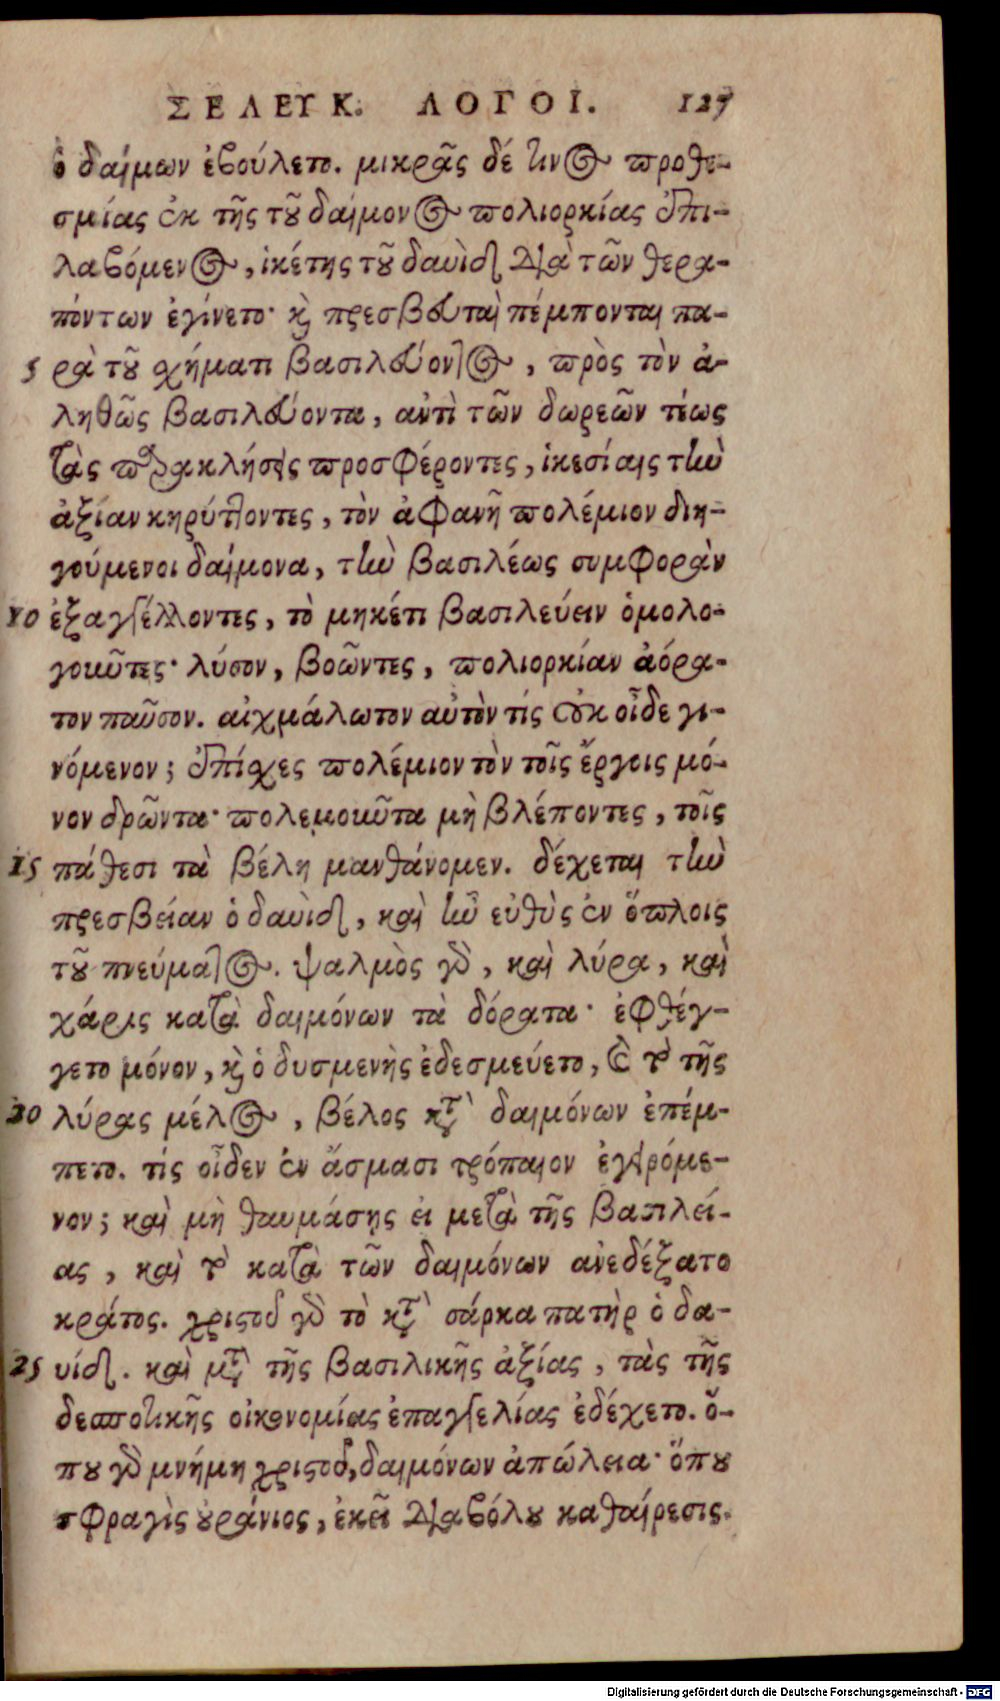 ΣΕΛΕΥΚ. ΛΟΓΟΙ. 127
ὁ δαίμων ἐβούλετο. μικρᾶς δέ τινος προθε-
σμίας ἐκ τῆς τοῦ δαίμονος πολιορκίας ἐπι-
λαβόμενος, ἱκέτης τοῦ δαυὶδ διὰ τῶν θερα-
πόντων ἐγίνετο· καὶ πρεσβευταὶ πέμπονται πα-
5 ρὰ τοῦ χήματι βασιλεύοντος, πρὸς τὸν ἀ-
ληθῶς βασιλεύοντα, αὐτὶ τῶν δωρεῶν τέως
τὰς παρακλήσεις προσφέροντες, ἱκεσίαις τὴν
ἀξίαν κηρύττοντες, τὸν ἀφανῆ πολέμιον διη-
γούμενοι δαίμονα, τὴν βασιλέως συμφορὰν
10 ἐξαγγέλλοντες, τὸ μηκέτι βασιλεύειν ὁμολο-
γοῦντες· λύσον, βοῶντες, πολιορκίαν ἀόρα-
τον παῦσον. αἰχμάλωτον αὐτὸν τίς οὐκ οἶδε γι-
νόμενον; ἐπίσχες πολέμιον τὸν τοῖς ἔργοις μό-
νον δρῶντα· πολεμοῦντα μὴ βλέποντες, τοῖς
15 πάθεσι τὰ βέλη μανθάνομεν. δέχεται τὴν
πρεσβείαν ὁ δαυὶδ, καὶ ἦν εὐθὺς ἐν ὅπλοις
τοῦ πνεύματος. ψαλμὸς γὰρ, καὶ λύρα, καὶ
χάρις κατὰ δαιμόνων τὰ δόρατα· ἐφθέγ-
γετο μόνον, καὶ ὁ δυσμενὴς ἐδεσμεύετο, καὶ τὸ τῆς
20 λύρας μέλος, βέλος κατὰ δαιμόνων ἐπέμ-
πετο. τίς οἶδεν ἐν ἄσμασι τρόπαιον ἐγειρόμε-
νον; καὶ μὴ θαυμάσῃς εἰ μετὰ τῆς βασιλεί-
ας, καὶ τὸ κατὰ τῶν δαιμόνων ἀνεδέξατο
κράτος. χριστοῦ γὰρ τὸ κατὰ σάρκα πατὴρ ὁ δα-
25 υίδ. καὶ μετὰ τῆς βασιλικῆς ἀξίας, τὰς τῆς
δεσποτικῆς οἰκονομίας ἐπαγγελίας ἐδέχετο. ὅ-
που γὰρ μνήμη χριστοῦ, δαιμόνων ἀπώλεια· ὅπου
σφραγὶς οὐράνιος, ἐκεῖ διαβόλου καθαίρεσις.
Digitalisierung gefördert durch die Deutsche Forschungsgemeinschaft - DFG